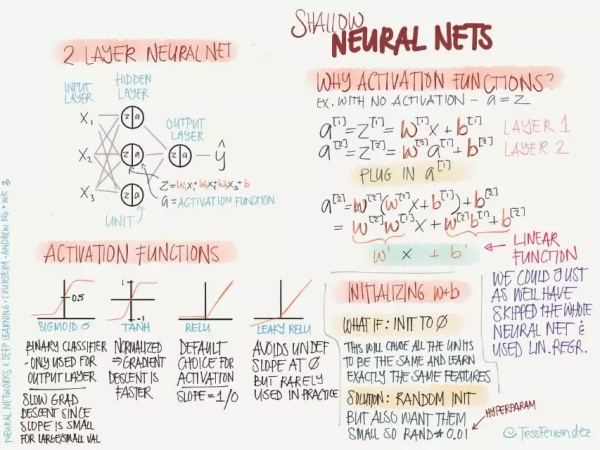 SHALLOW
NEURAL NETS
2 LAYER NEURAL NET
INPUT
LAYER
HIDDEN
LAYER
OUTPUT
LAYER
X₁
X₂
X₃
z a
z a
z a
z a
ŷ
Z = W₁X₁ + W₂X₂ + W₃X₃ + b
a = ACTIVATION FUNCTION
UNIT
ACTIVATION FUNCTIONS
0.5
SIGMOID σ
BINARY CLASSIFIER
- ONLY USED FOR
OUTPUT LAYER
SLOW GRAD
DESCENT SINCE
SLOPE IS SMALL
FOR LARGE/SMALL VAL
1
-1
TANH
NORMALIZED
⇒ GRADIENT
DESCENT IS
FASTER
RELU
DEFAULT
CHOICE FOR
ACTIVATION
SLOPE = 1/0
LEAKY RELU
AVOIDS UNDEF
SLOPE AT 0
BUT RARELY
USED IN PRACTICE
WHY ACTIVATION FUNCTIONS?
EX. WITH NO ACTIVATION - a = Z
a[1] = Z[1] = W[1] X + b[1] LAYER 1
a[2] = Z[2] = W[2] a[1] + b[2] LAYER 2
PLUG IN a[1]
a[2] = W[2](W[1] X + b[1]) + b[2]
= W[2] W[1] X + W[2] b[1] + b[2]
W' X + b'
LINEAR
FUNCTION
WE COULD JUST
AS WELL HAVE
SKIPPED THE WHOLE
NEURAL NET &
USED LIN. REGR.
INITIALIZING W+b
WHAT IF: INIT TO 0
THIS WILL CAUSE ALL THE UNITS
TO BE THE SAME AND LEARN
EXACTLY THE SAME FEATURES
SOLUTION: RANDOM INIT
BUT ALSO WANT THEM
SMALL SO RAND * 0.01
HYPERPARAM
@TessFerrandez
NEURAL NETWORKS & DEEP LEARNING • COURSERA • ANDREW NG • WK 3